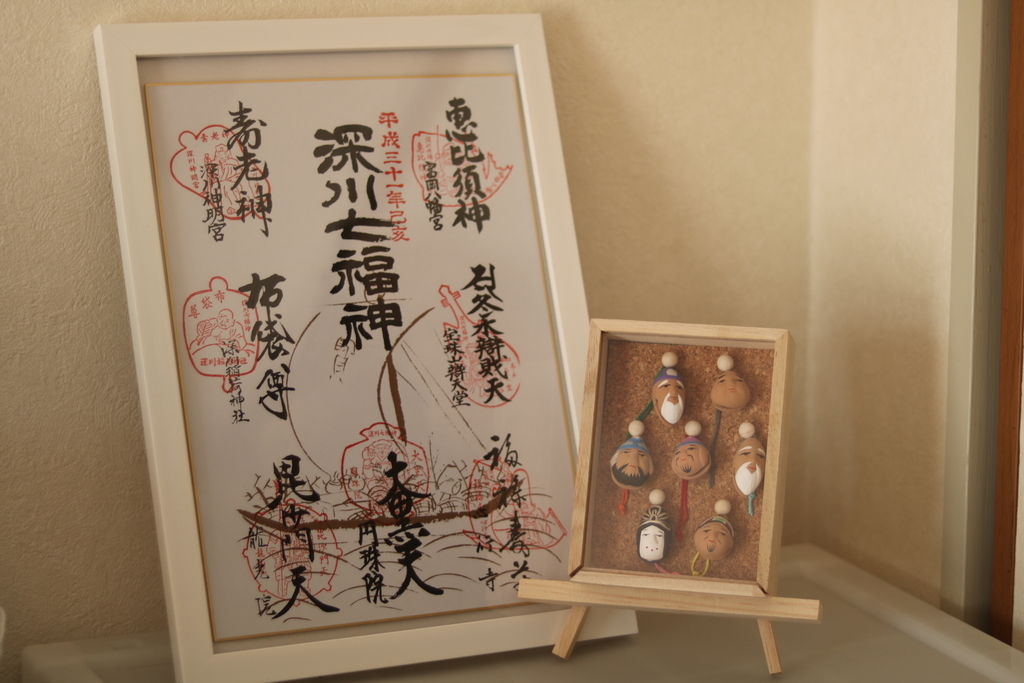 恵比須神
富岡八幡宮
平成三十一年己亥
深川七福神
寿老神
深川神明宮
冬木辯財天
宝珠山辯天堂
布袋尊
深川稲荷神社
福禄寿
心行寺
大黒天
円珠院
毘沙門天
龍光院